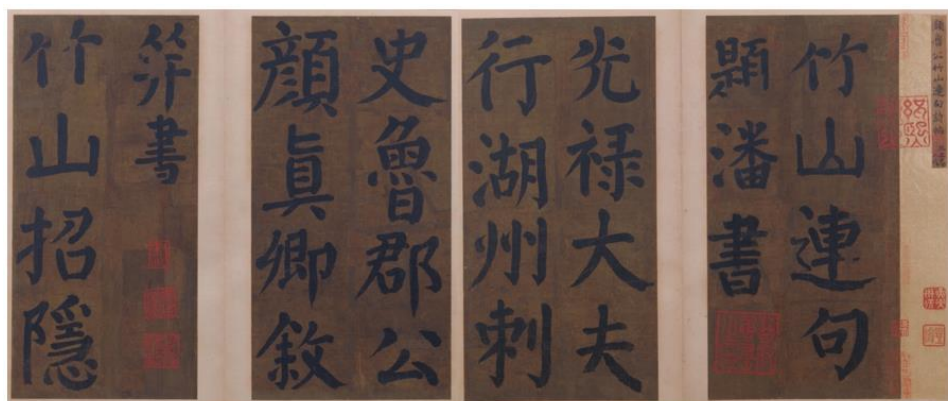 竹山連句
題潘書
光禄大夫
行湖州刺
史魯郡公
顔眞卿敘
并書
竹山招隱